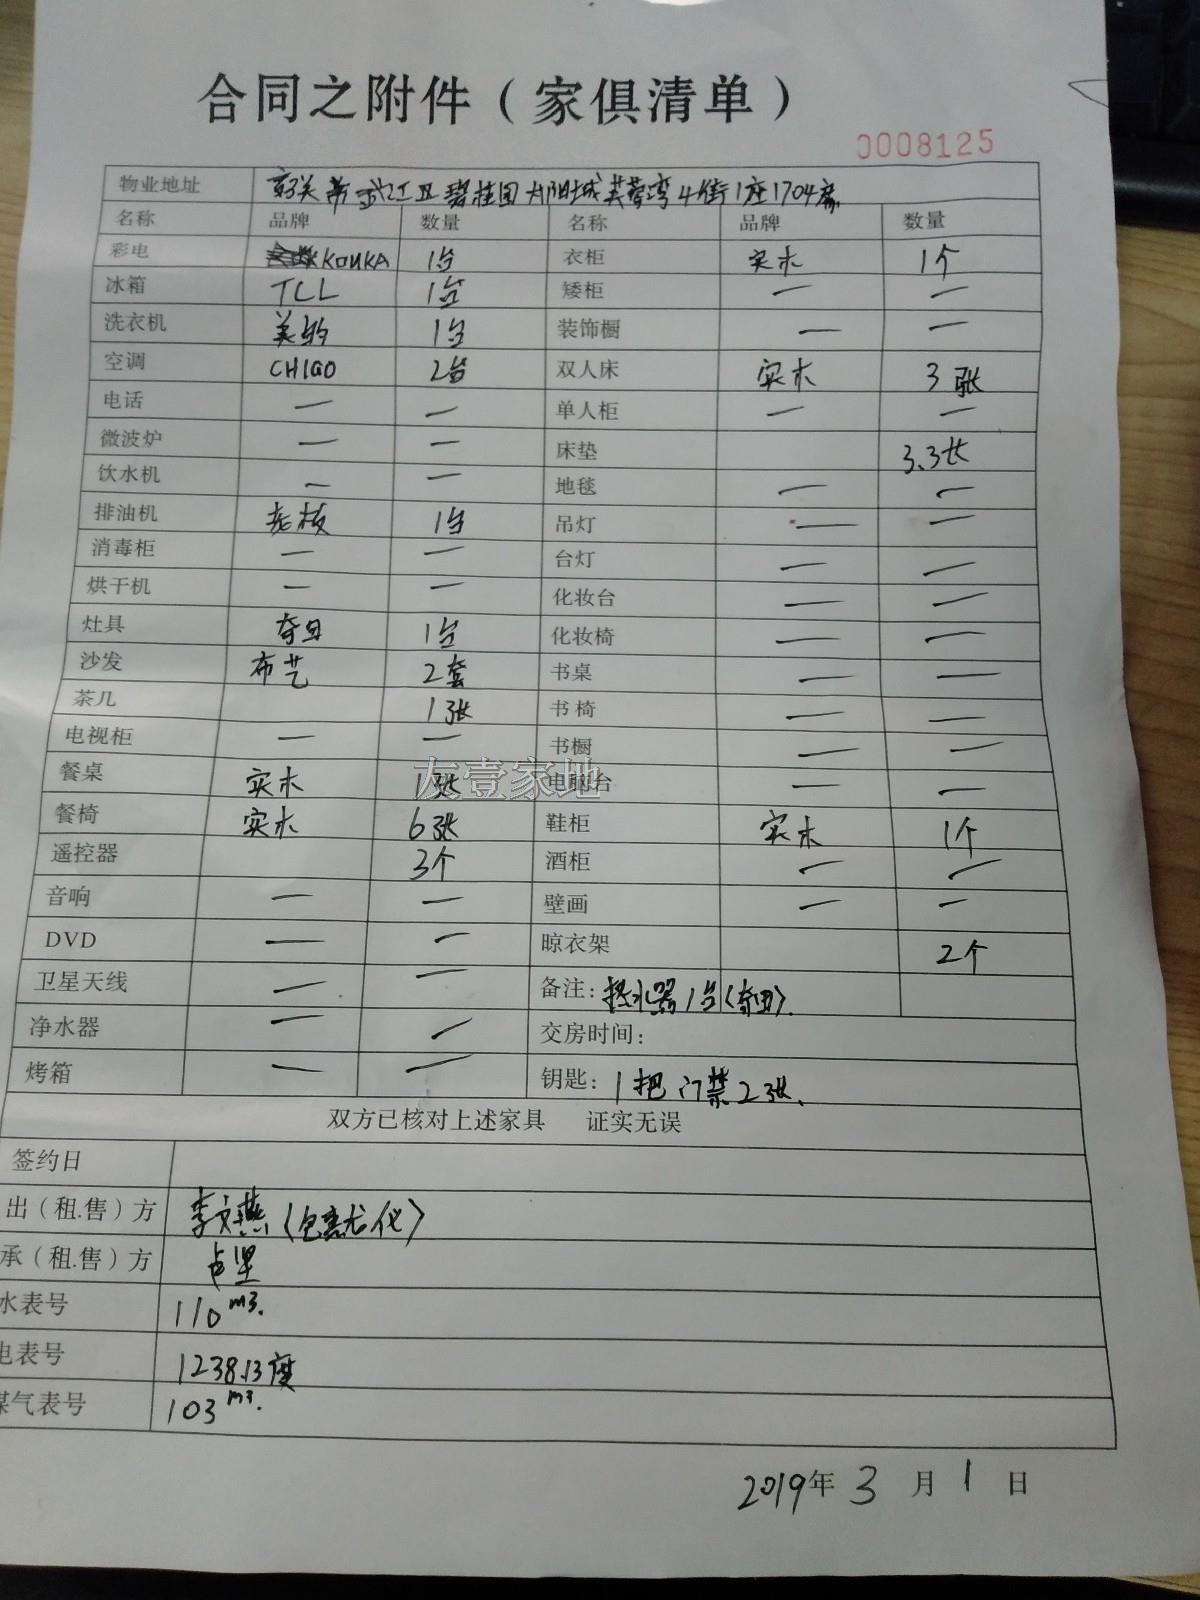 合同之附件（家俱清单）
0008125
物业地址 韶关市武江区碧桂园太阳城芙蓉湾4街1座1704房
名称 品牌 数量 名称 品牌 数量
彩电 KONKA 1台 衣柜 实木 1个
冰箱 TCL 1台 矮柜 — —
洗衣机 美的 1台 装饰橱 — —
空调 CHIGO 2台 双人床 实木 3张
电话 — — 单人柜 — —
微波炉 — — 床垫 3.3张
饮水机 — — 地毯 — —
排油机 1台 吊灯 — —
消毒柜 — — 台灯 — —
烘干机 — — 化妆台 — —
灶具 1台 化妆椅 — —
沙发 布艺 2套 书桌 — —
茶几 1张 书椅 — —
电视柜 — — 书橱 — —
餐桌 实木 1张 电脑台 — —
餐椅 实木 6张 鞋柜 实木 1个
遥控器 3个 酒柜 — —
音响 — — 壁画 — —
DVD — — 晾衣架 2个
卫星天线 — — 备注: 热水器1台
净水器 — — 交房时间:
烤箱 — — 钥匙: 1把 门禁2张.
友壹家地
双方已核对上述家具 证实无误
签约日
出（租.售）方 李文燕
承（租.售）方
水表号 110m3.
电表号 1238.13度
煤气表号 103m3.
2019年3月1日